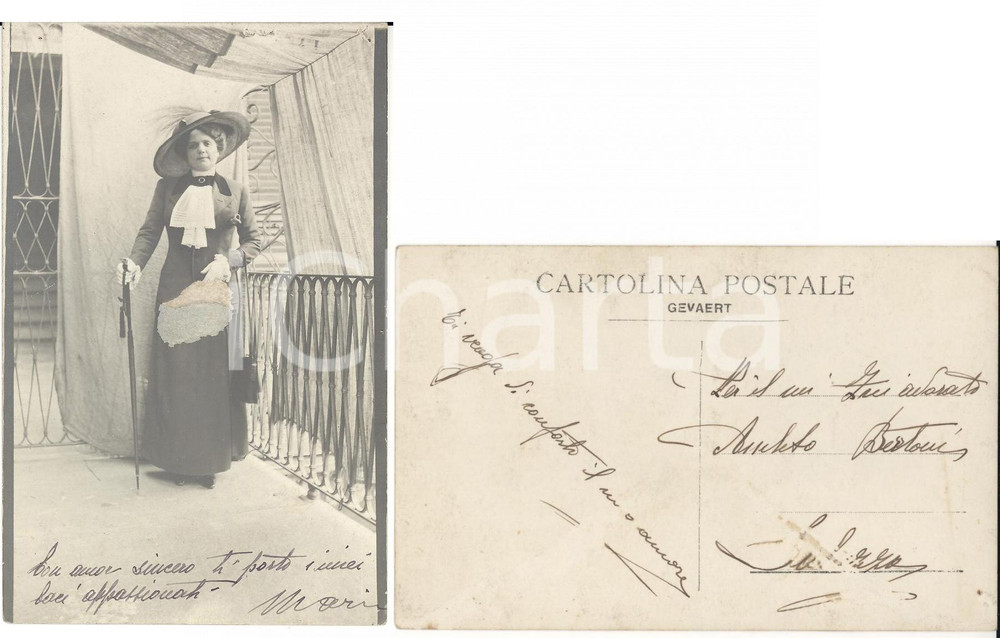 Con amor sincero ti porto i miei
baci appassionati
Mari
CARTOLINA POSTALE
GEVAERT
Ti venga di conforto il mio amore
Per il mi adorato
Bertoni
iCharta